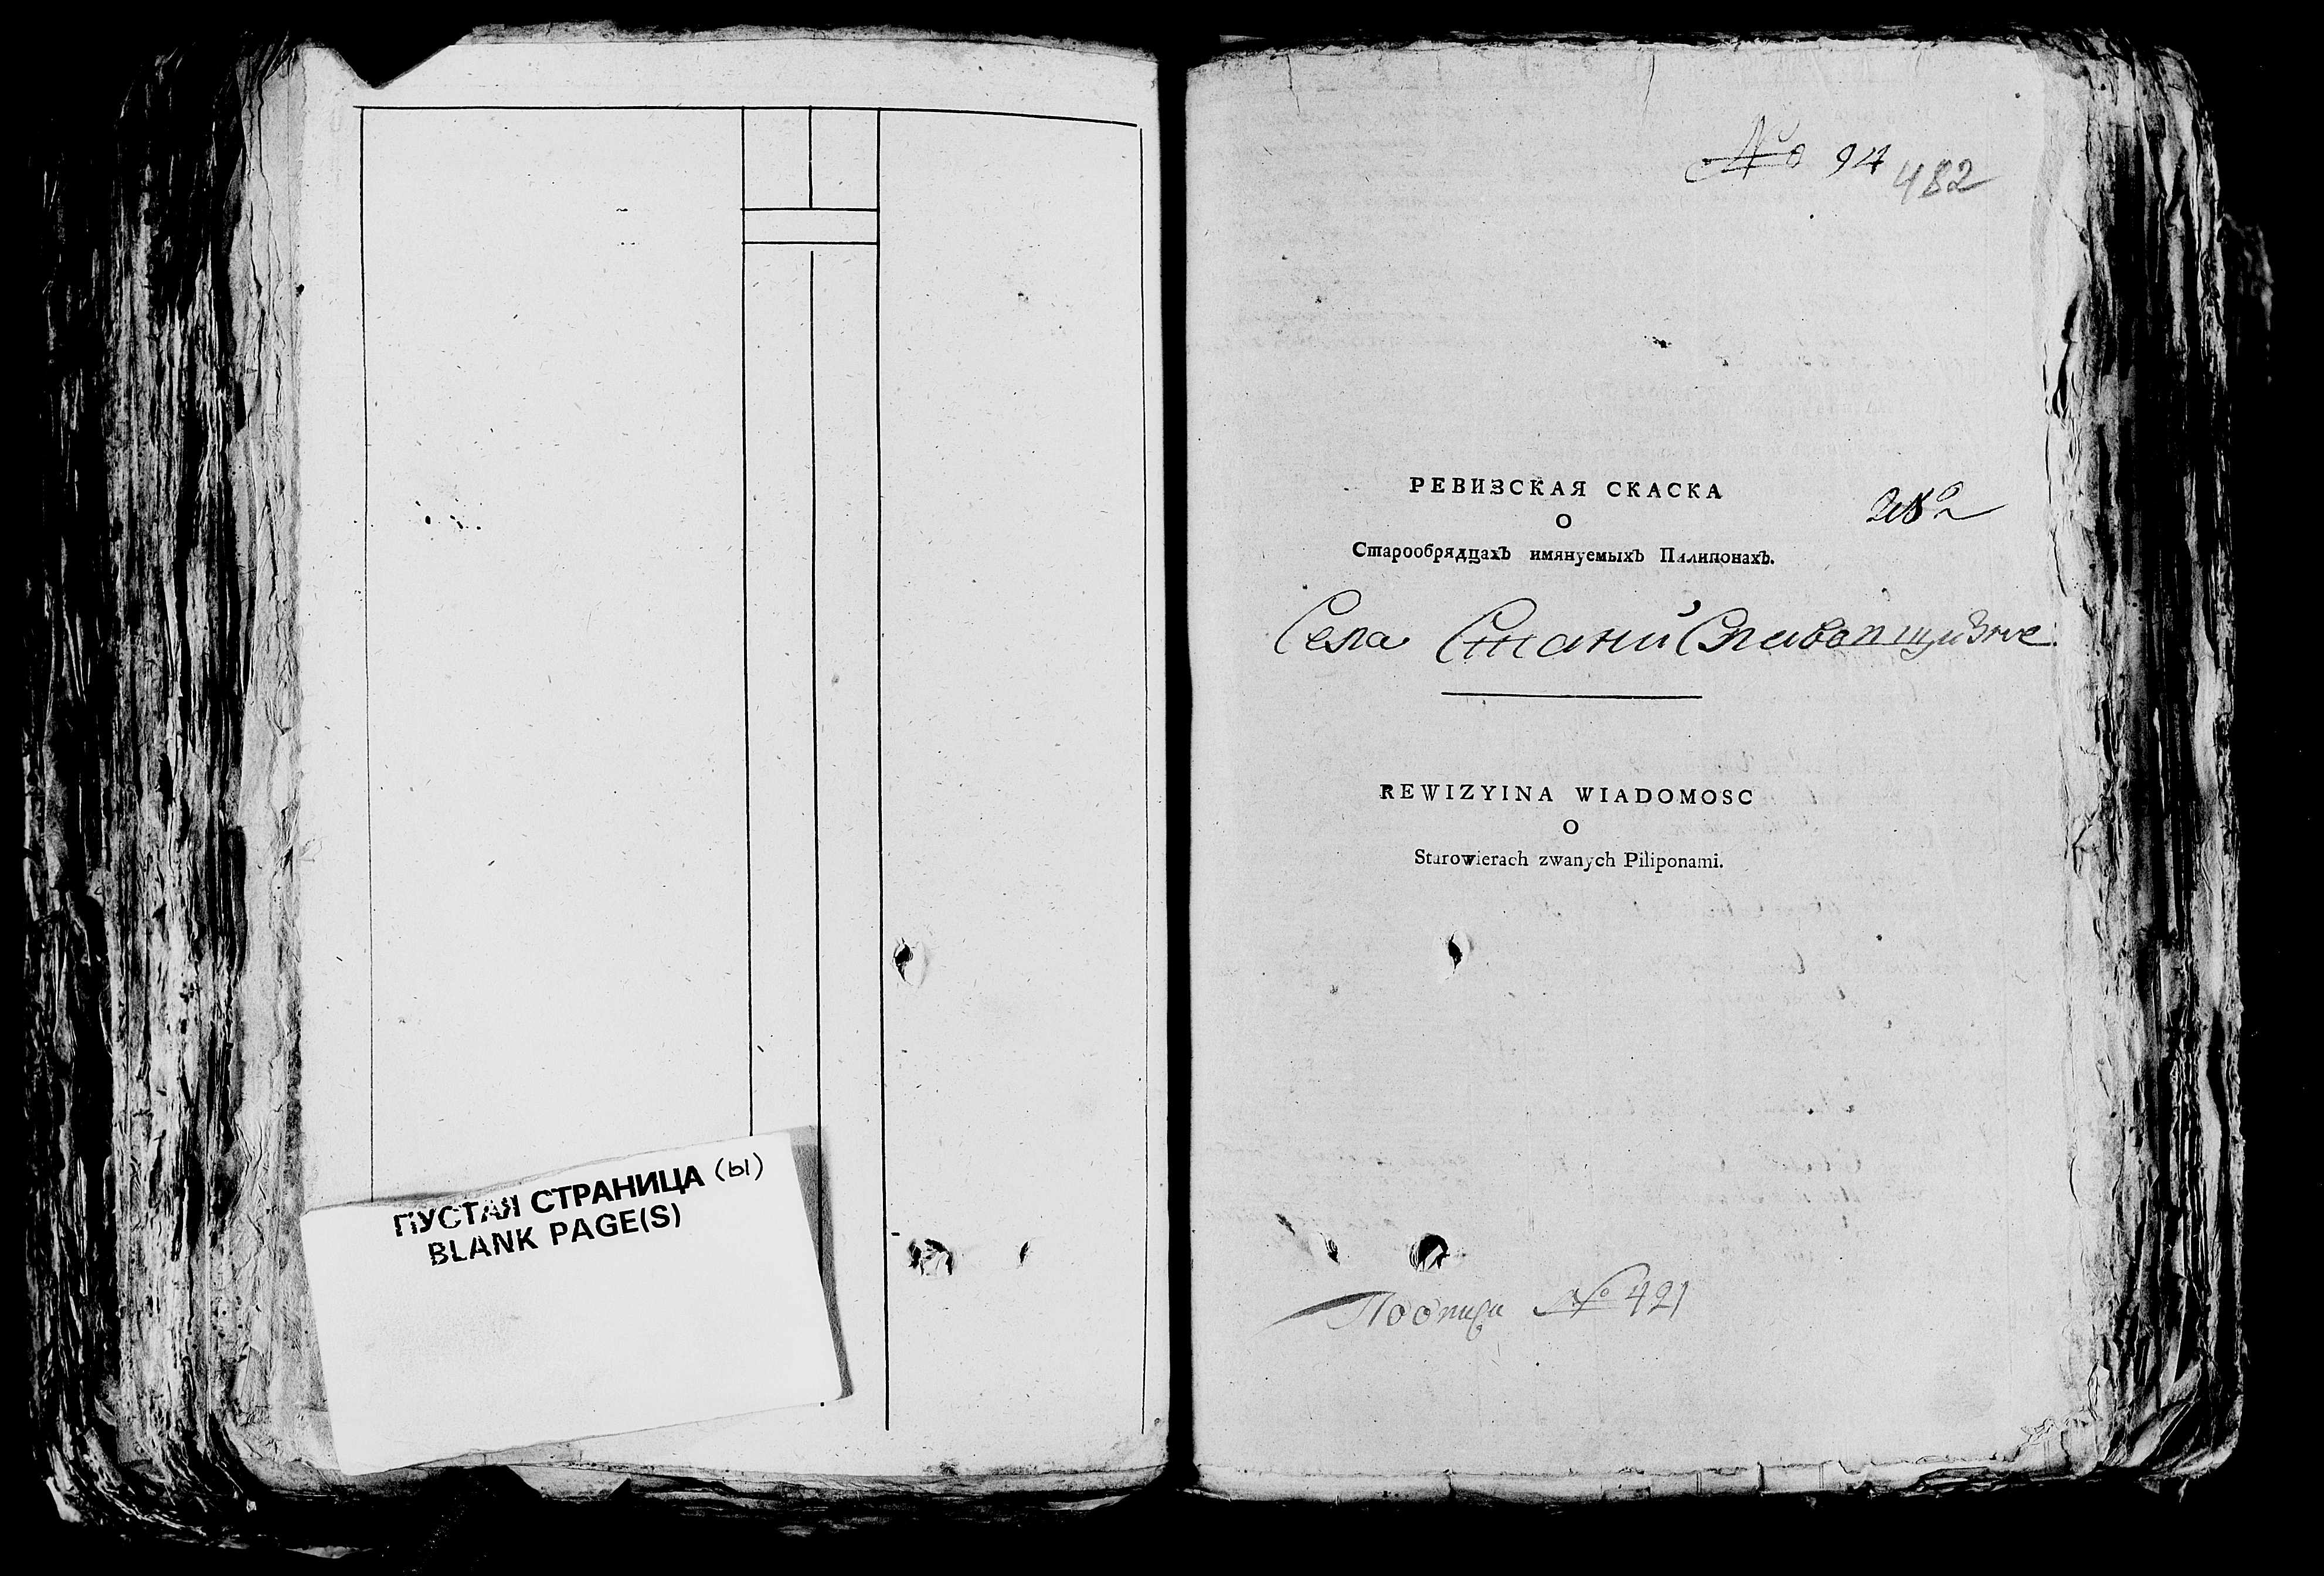 ПУСТАЯ СТРАНИЦА (ы)
BLANK PAGE(S)
№ 94
482
РЕВИЗСКАЯ СКАСКА
О
Старообрядцахъ имянуемыхъ Пилипонахъ.
Села
REWIZYINA WIADOMOSC
O
Starowierach zwanych Piliponami.
№ 421